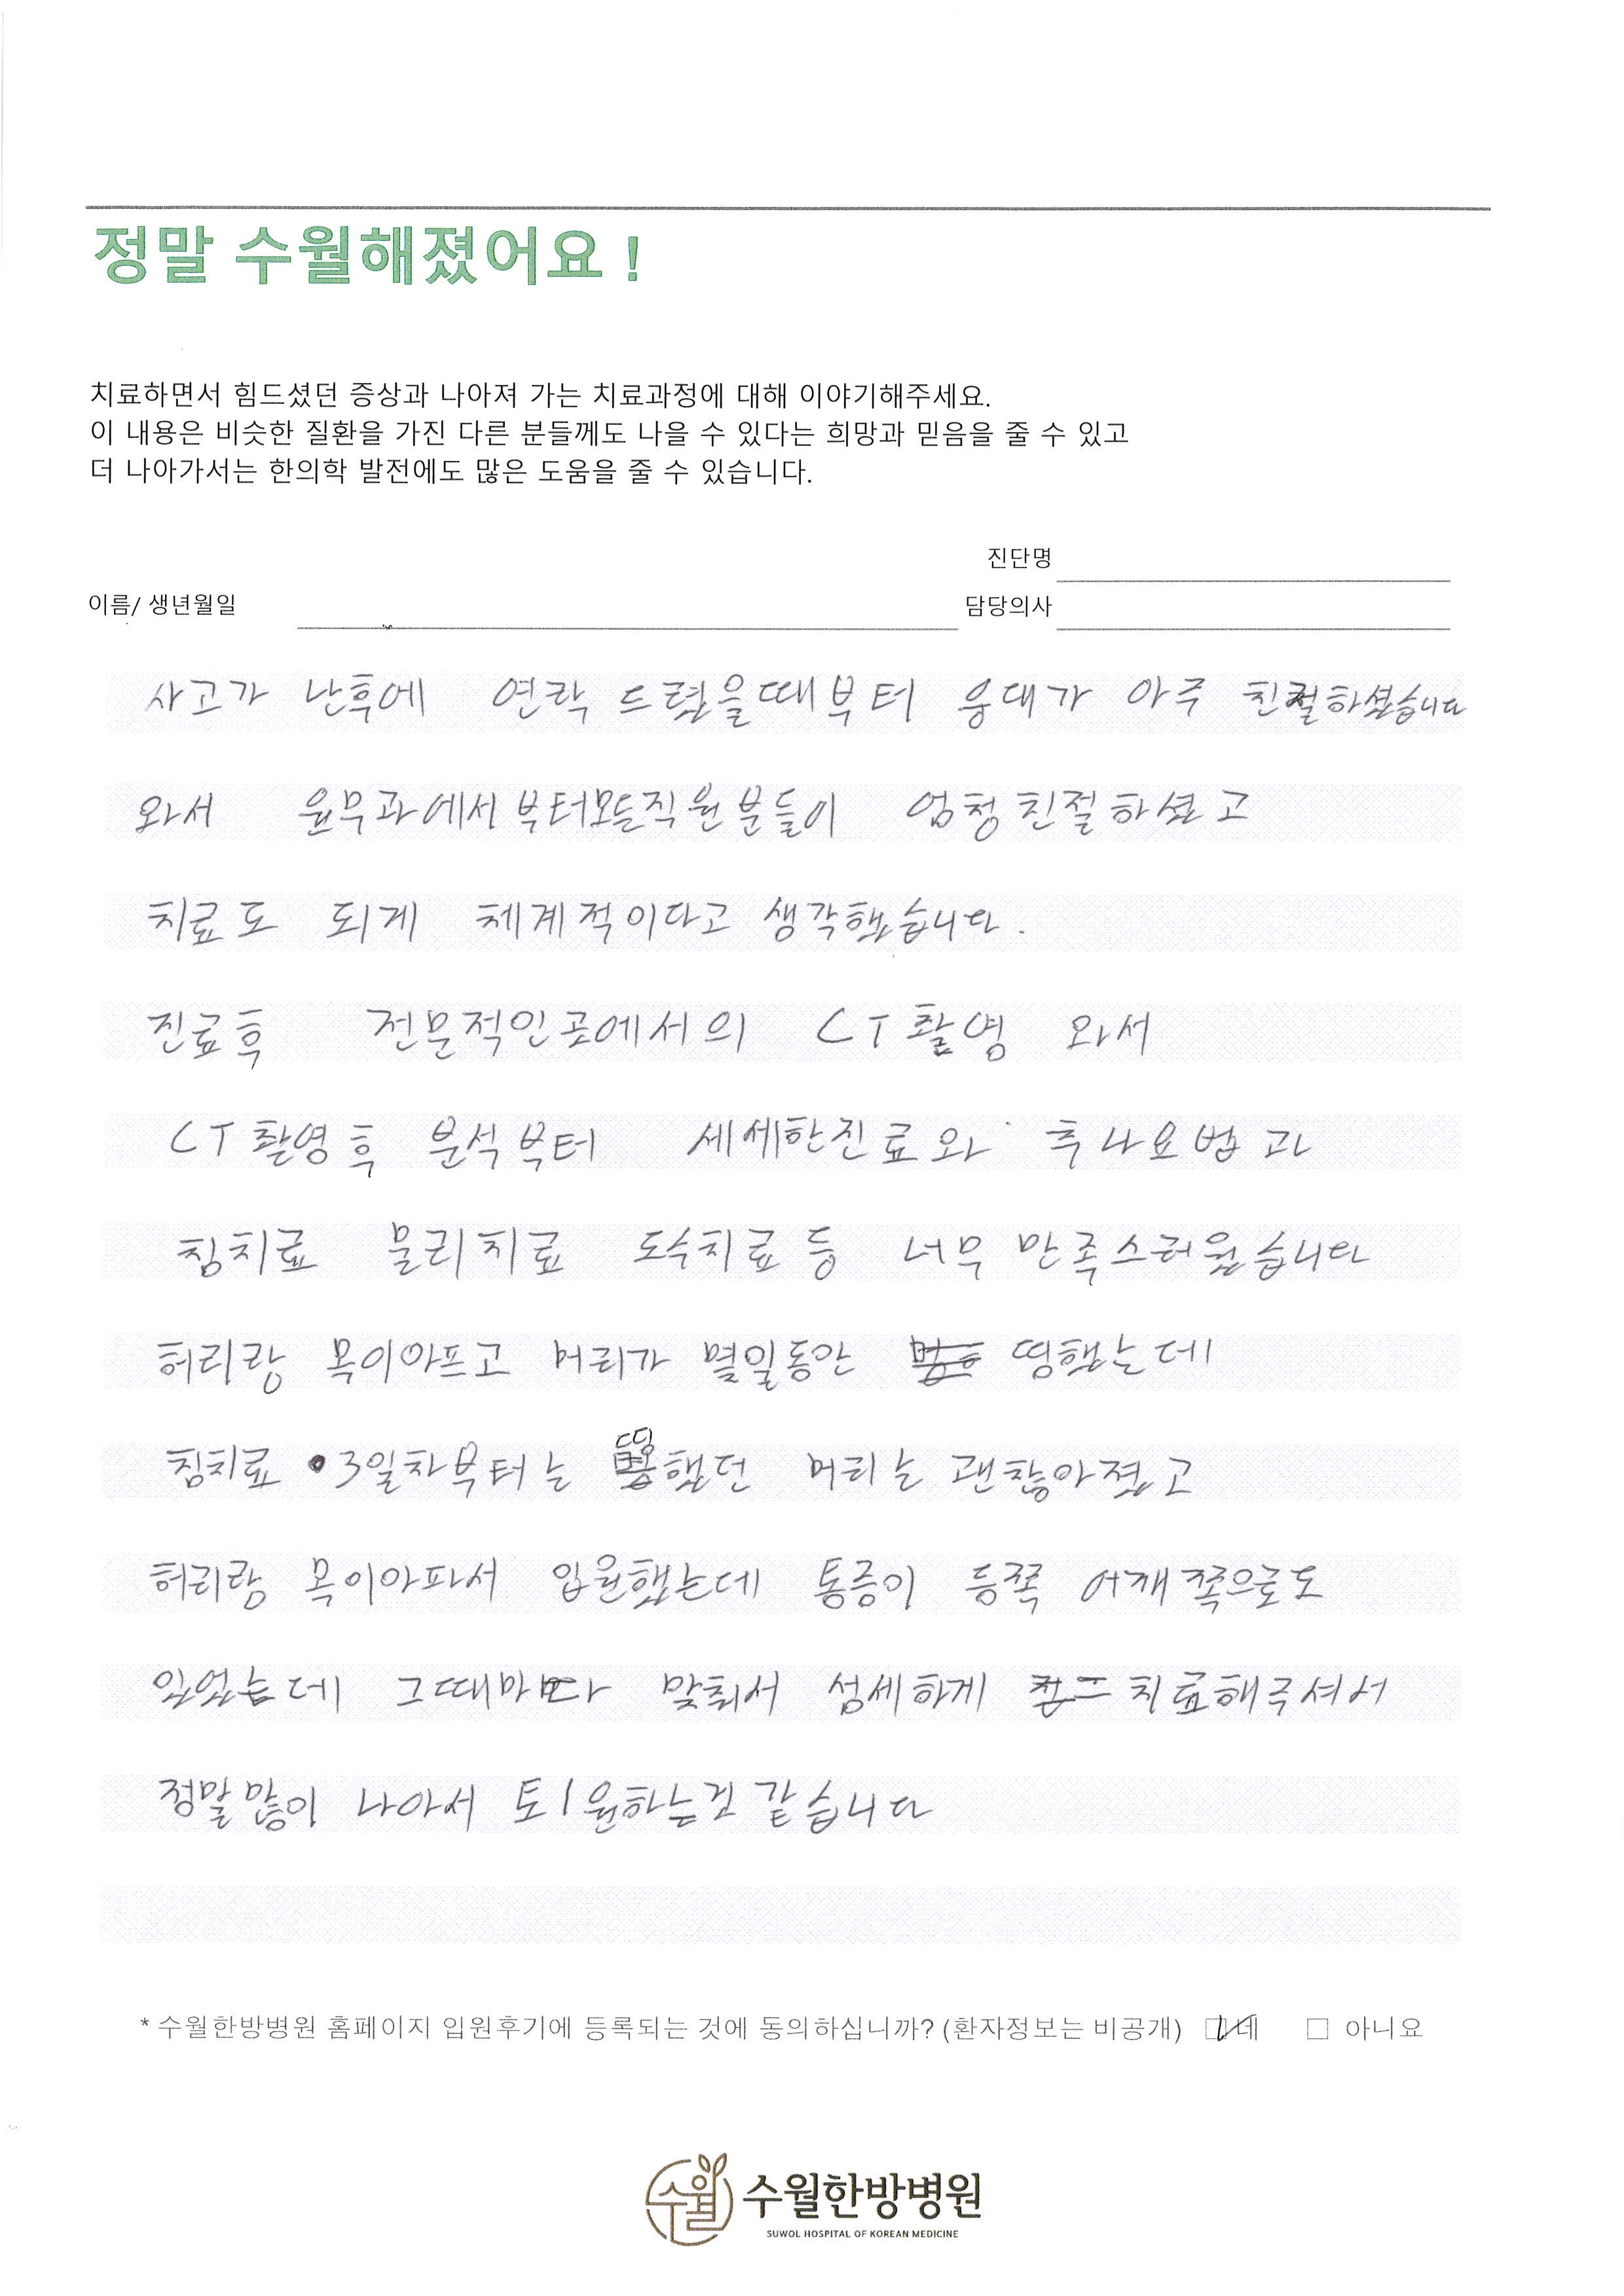 정말 수월해졌어요 !
치료하면서 힘드셨던 증상과 나아져 가는 치료과정에 대해 이야기해주세요.
이 내용은 비슷한 질환을 가진 다른 분들께도 나을 수 있다는 희망과 믿음을 줄 수 있고
더 나아가서는 한의학 발전에도 많은 도움을 줄 수 있습니다.
진단명
이름/ 생년월일
담당의사
사고가 난후에 연락 드렸을때부터 응대가 아주 친절하셨습니다
와서 원무과에서부터모든직원분들이 엄청친절하셨고
치료도 되게 체계적이다고 생각했습니다.
진료후 전문적인곳에서의 CT촬영 와서
CT촬영후 분석부터 세세한진료와 추나요법과
침치료 물리치료 도수치료등 너무 만족스러웠습니다
허리랑 목이아프고 머리가 몇일동안 띵했는데
침치료 3일차부터는 띵했던 머리는 괜찮아졌고
허리랑 목이아파서 입원했는데 통증이 등쪽 어깨쪽으로도
있었는데 그때마다 맞춰서 섬세하게 치료해주셔서
정말많이 나아서 퇴원하는것같습니다
* 수월한방병원 홈페이지 입원후기에 등록되는 것에 동의하십니까? (환자정보는 비공개) □ 네 □ 아니요
수월 수월한방병원
SUWOL HOSPITAL OF KOREAN MEDICINE